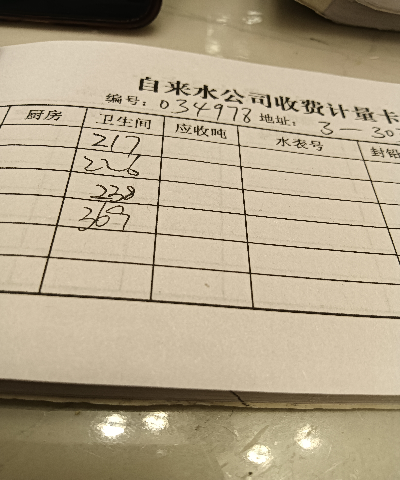 自来水公司收费计量卡
编号: 034978 地址: 3-30
厨房 卫生间 应收吨 水表号 封铅
217
226
238
369